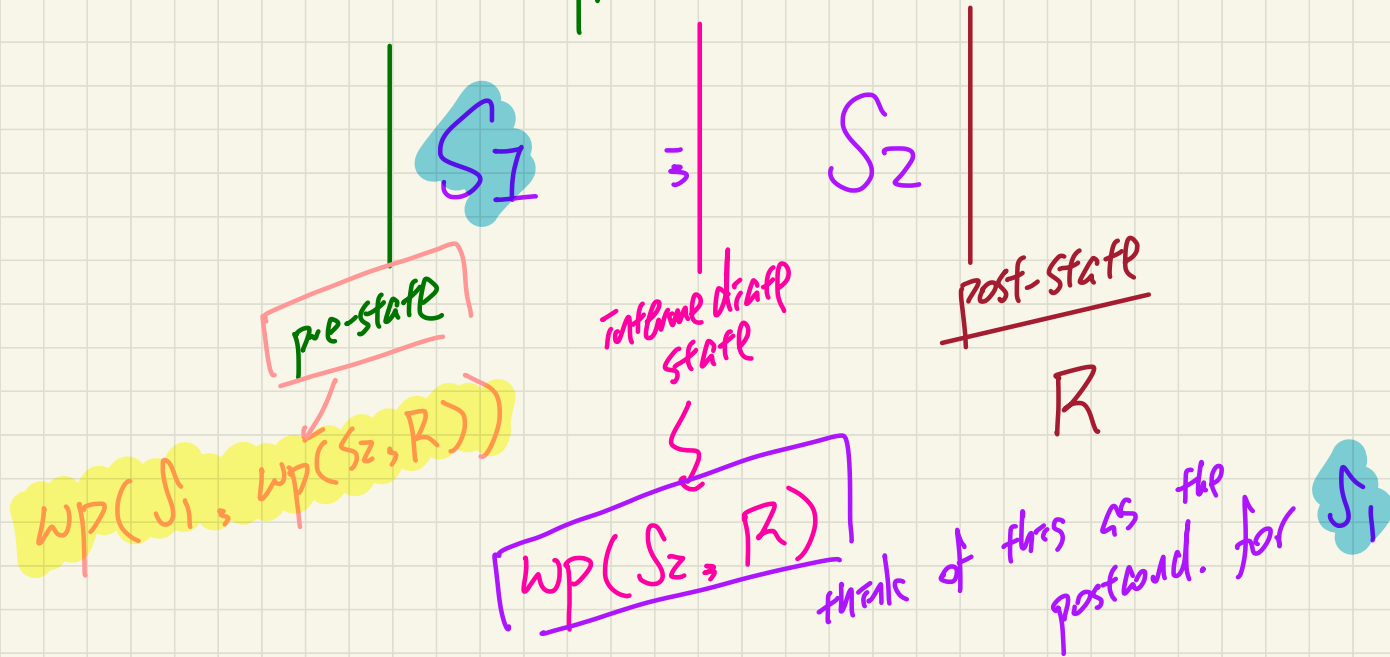 S1 ; S2
pre-state
intermediate
state
post-state
R
wp(S1, wp(S2, R))
wp(S2, R)
think of this as the
postcond. for S1